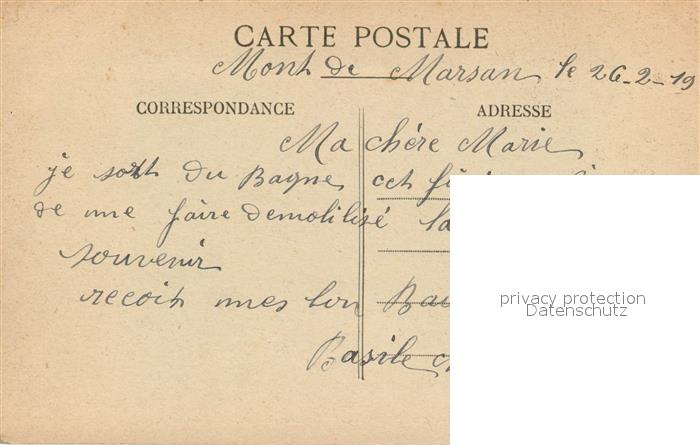 CARTE POSTALE
Mont de Marsan le 26-2-19
CORRESPONDANCE
ADRESSE
Ma chère Marie
je sort du Bagne cet
de me faire demolilisé
souvenir
recoit mes bon
Basile
privacy protection
Datenschutz